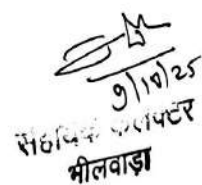 9/10/25
सहायक कलक्टर
भीलवाड़ा